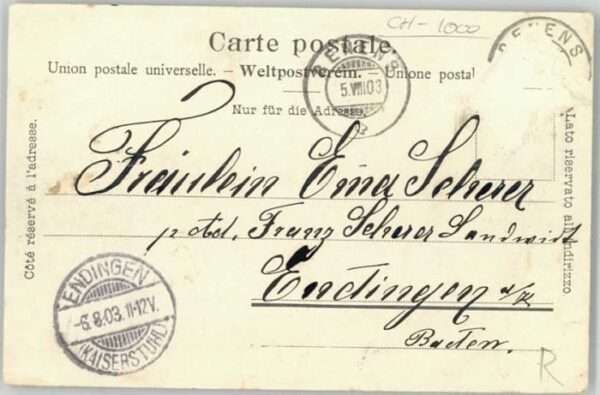 CH-1000
Carte postale.
Union postale universelle. — Weltpostverein. — Unione postal
Nur für die Adresse.
RENENS
5.VIII.03
RENENS
Côté réservé à l'adresse.
Lato riservato all'indirizzo
Fräulein Ema Scherer
p. Ad. Franz Scherer Landwirt
Endingen a/K
Baden.
ENDINGEN
-6.8.03.11-12V.
(KAISERSTUHL)
R